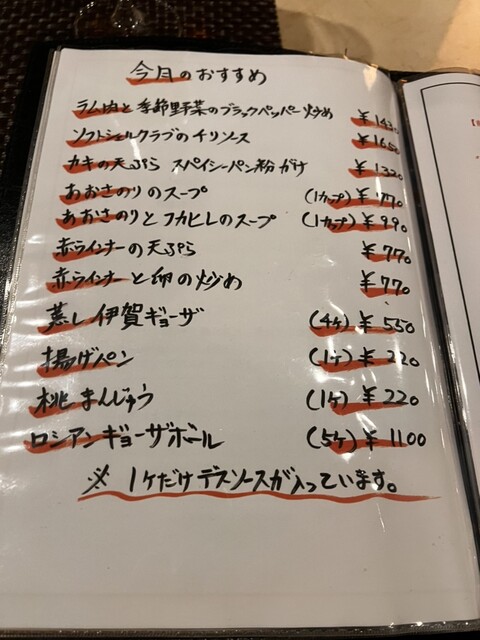 今月のおすすめ
ラム肉と季節野菜のブラックペッパー炒め ¥1430
ソフトシェルクラブのチリソース ¥1650
カキの天ぷら スパイシーパン粉がけ ¥1320
あおさのりのスープ (1カップ) ¥770
あおさのりとフカヒレのスープ (1カップ) ¥990
赤ウインナーの天ぷら ¥770
赤ウインナーと卵の炒め ¥770
蒸し伊賀ギョーザ (4ケ) ¥550
揚げパン (1ケ) ¥220
桃まんじゅう (1ケ) ¥220
ロシアンギョーザボール (5ケ) ¥1100
※ 1ケだけデスソースが入っています。